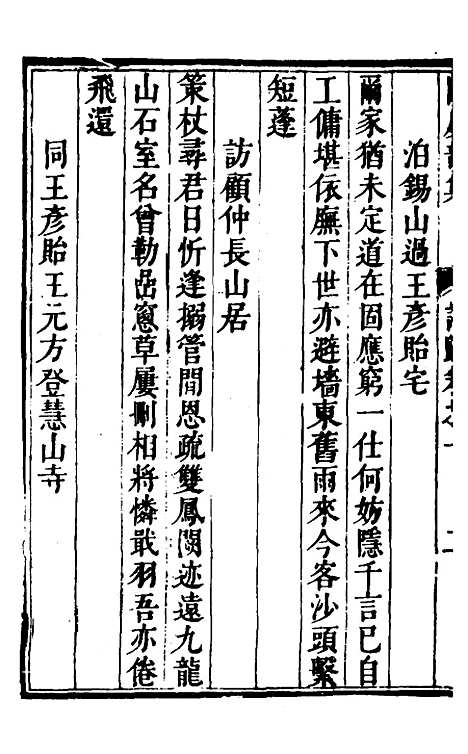 泊錫山過王彥貽宅
爾家猶未定道在固應窮一仕何妨隱千言已自
工傭堪依廡下世亦避墻東舊雨來今客沙頭繫
短蓬
訪顧仲長山居
策杖尋君日忻逢搦管閒恩疏雙鳳闕迹遠九龍
山石室名曾勒嵒窻草屢刪相將憐戢羽吾亦倦
飛還
同王彥貽王元方登慧山寺